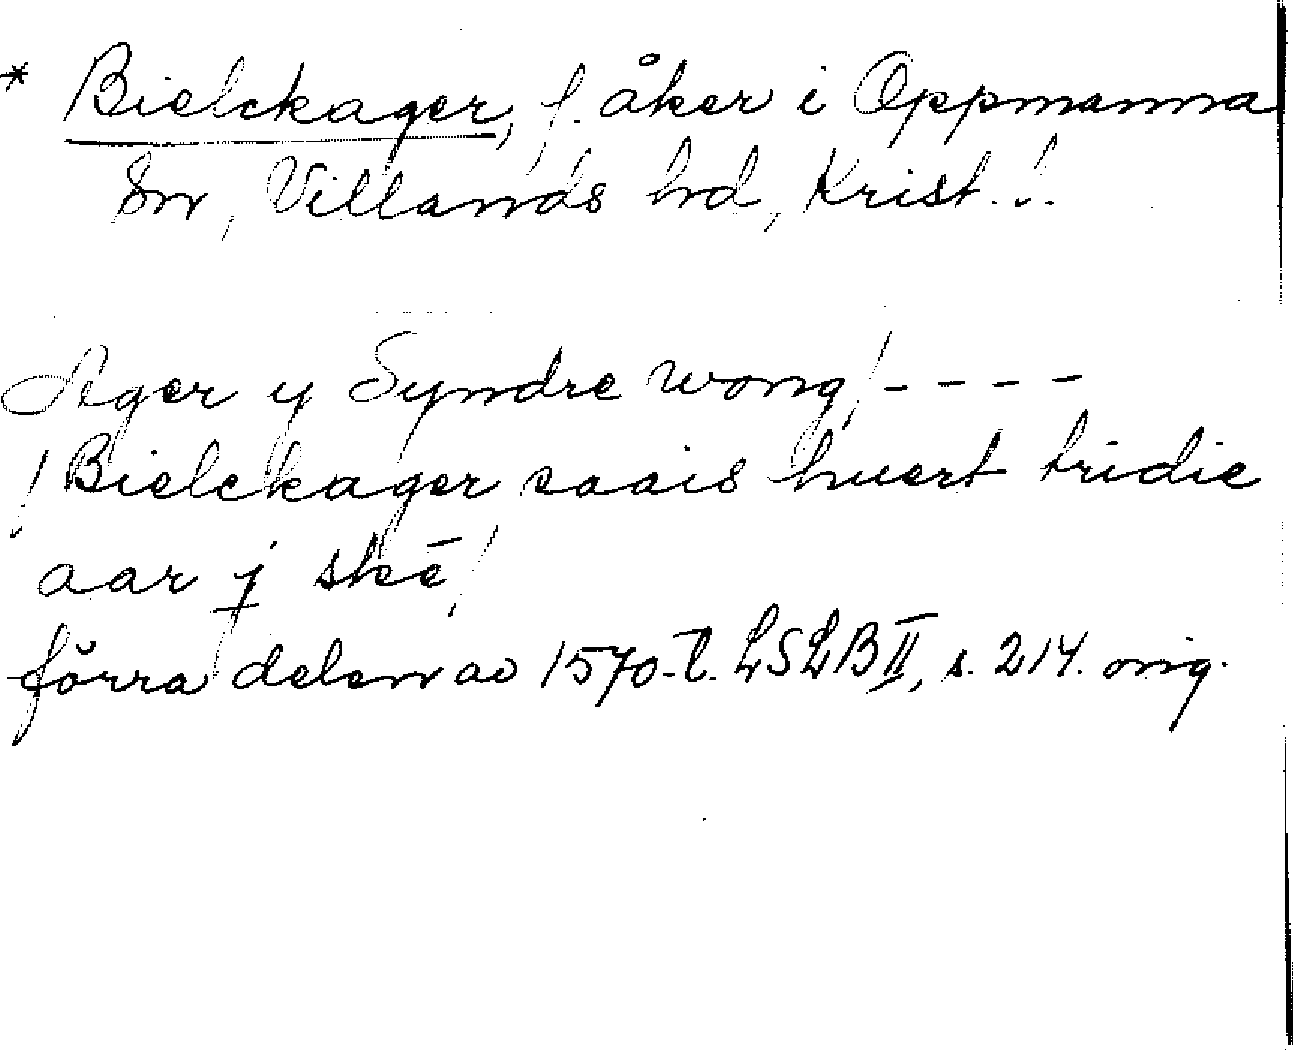 * Bielckager, f. åker i Oppmanna
sn, Villands hd, Krist. l.
Ager y Syndre wong / - - - -
/ Bielckager saais huert tridie
aar j skē /
förra delen av 1570-t. LSLB II, s. 214. orig.